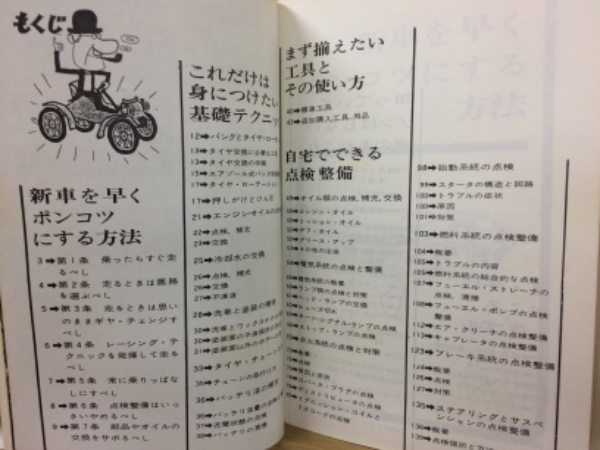 もくじ
新車を早く
ポンコツ
にする方法
3➡第1条 乗ったらすぐ走
るべし
4➡第2条 走るときは悪路
を選ぶべし
5➡第3条 走るときは思い
のままギヤ・チェンジす
べし
6➡第4条 レーシング・テ
クニックを発揮して走る
べし
7➡第5条 常に乗りっぱな
しにすべし
8➡第6条 点検整備はいっ
さいやめるべし
9➡第7条 部品やオイルの
交換をサボるべし
これだけは
身につけたい
基礎テクニッ
12➡パンクとタイヤ・ロー
13➡タイヤ交換に必要な工具
13➡タイヤ交換の手順
15➡エアゾール式パンク
17➡タイヤ・ローテーション
17➡押しがけとけん引
21➡エンジンオイルの
22➡点検、補充
23➡交換
25➡冷却水の交換
26➡点検、補充
26➡交換
27➡不凍液
28➡洗車と塗装の
30➡洗車とワックス
33➡タイヤ・チェーン
34➡チェーンの取付け
36➡バッテリ液の補充
36➡バッテリ液量の点検
37➡充電状態の点検
38➡バッテリの清掃
まず揃えたい
工具と
その使い方
40➡標準工具
43➡追加購入工具、用品
自宅でできる
点検整備
49➡オイル類の点検、補充、交換
50➡エンジン・オイル
52➡ミッション・オイル
54➡デフ・オイル
➡グリース・アップ
➡その他の注油
➡電気系統の点検と整備
➡電気系統の概要
➡ランプ類の点検と対策
➡ヘッド・ランプの交換
➡ヒューズ切れ
➡ターンシグナル・ランプの点検
➡ストップ・ランプの点検
➡点火系統の点検と対策
➡概要
➡点検
➡原因と症状
➡スパーク・プラグの点検
➡ディストリビュータの点検
➡イグニッション・コイルと
コードの点検
98➡始動系統の点検
99➡スタータの構造と回路
100➡トラブルの症状
100➡原因
101➡対策
103➡燃料系統の点検整備
104➡概要
105➡トラブルの内容
105➡燃料系統の総合的な点検
107➡フューエル・ストレーナの
点検、清掃
108➡フューエル・ポンプの点検
整備
112➡エア・クリーナの点検整備
113➡キャブレータの点検整備
123➡ブレーキ系統の点検整備
124➡概要
126➡点検
127➡対策
135➡ステアリングとサスペ
ンションの点検整備
136➡概要
139➡点検個所と方法